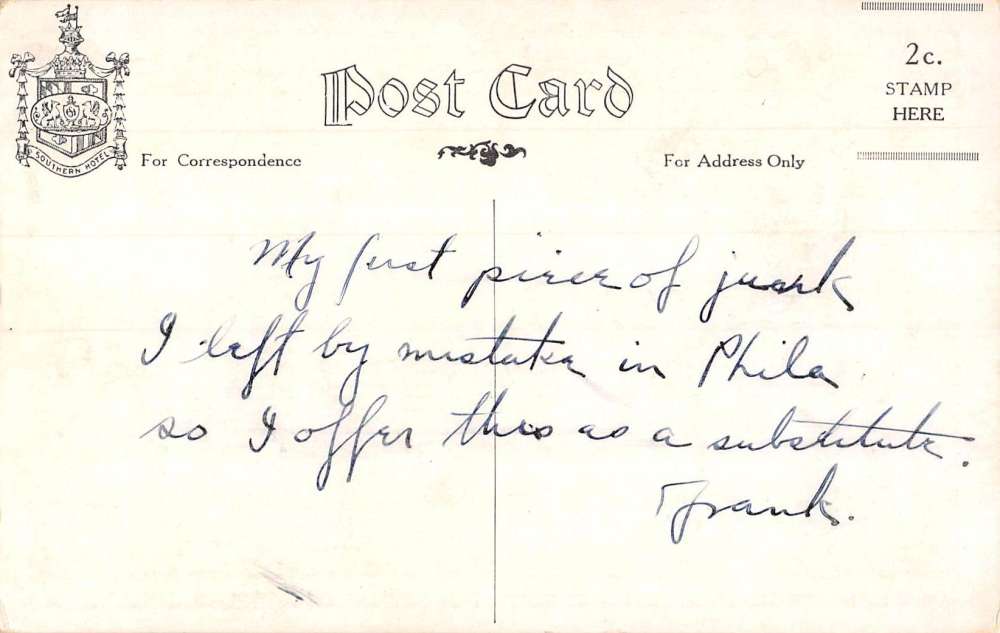 Post Card
2c.
STAMP
HERE
SOUTHERN HOTEL
For Correspondence
For Address Only
My first piece of junk
I left by mistake in Phila
so I offer this as a substitute.
Frank.